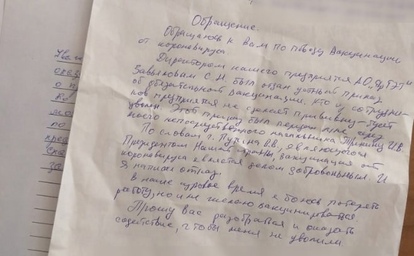 Обращение.
Обращаюсь к Вам по поводу вакцинации
от коронавируса
Директором нашего предприятия АО
Завьяловым С.М. был отдан устный приказ
об обязательной вакцинации, кто из сотрудни-
ков предприятия не сделает прививку - будет
уволен. Этот приказ был передан мне через
моего непосредственного начальника И.В.
По словам Путина В.В., являющегося
Президентом нашей страны, вакцинация от
коронавируса является делом добровольным. И
я написал отказ.
В наше суровое время я боюсь потерять
работу, но и не желаю вакцинироваться
Прошу вас разобраться и оказать
содействие, чтобы меня не уволили